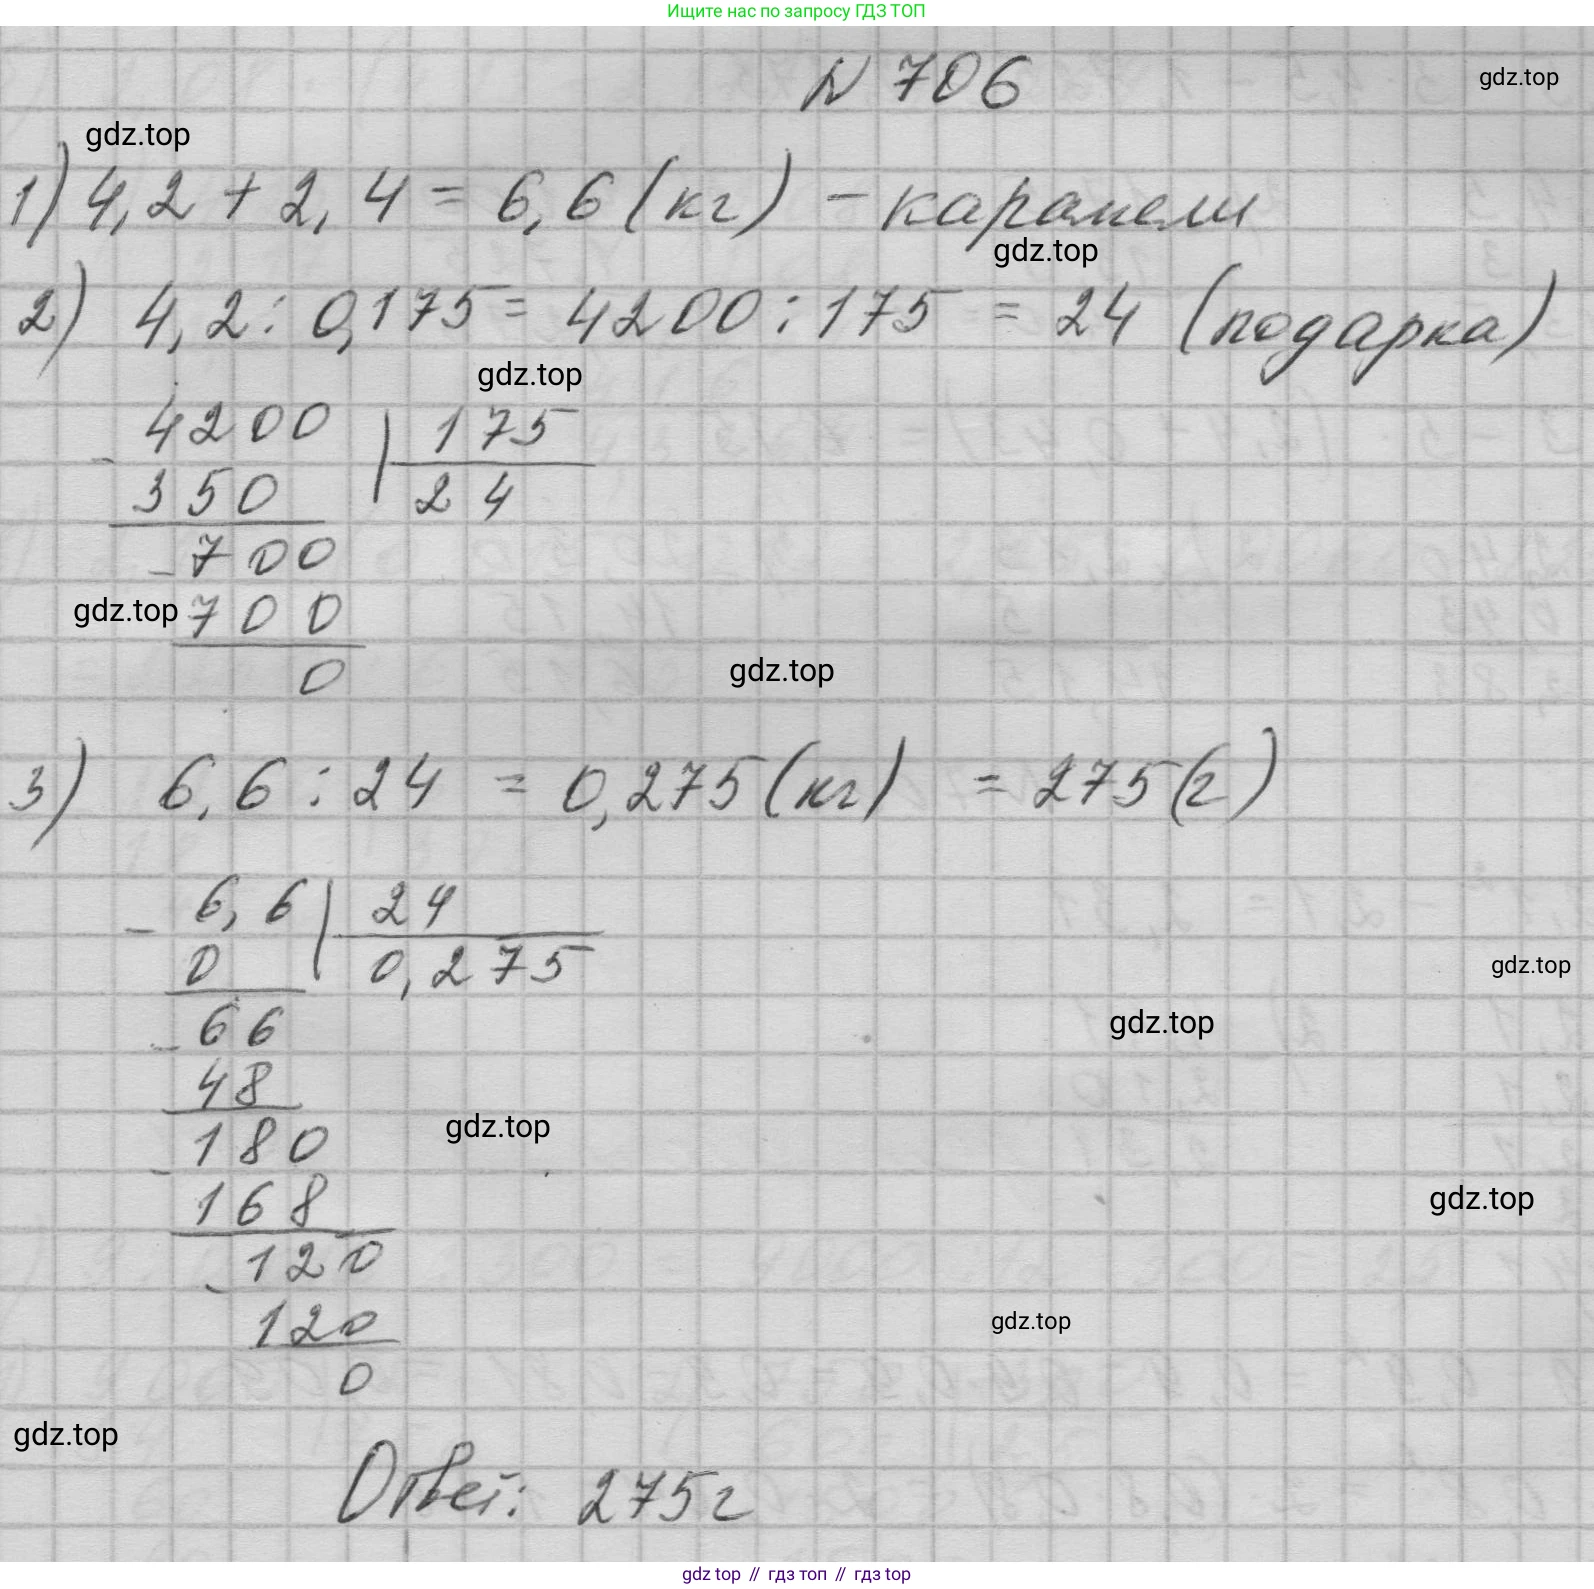 Ищите нас по запросу ГДЗ ТОП
N 706
gdz.top
gdz.top
1) 4,2 + 2,4 = 6,6 (кг) - карамели
gdz.top
2) 4,2 : 0,175 = 4200 : 175 = 24 (подарка)
gdz.top
4200 | 175
- 350 24
- 700
gdz.top 700
0
gdz.top
3) 6,6 : 24 = 0,275 (кг) = 275 (г)
- 6,6 | 24
0 0,275
gdz.top
- 66
gdz.top
48
gdz.top
- 180
168
gdz.top
- 120
120
gdz.top
0
gdz.top
Ответ: 275 г
gdz top // гдз топ // гдз top